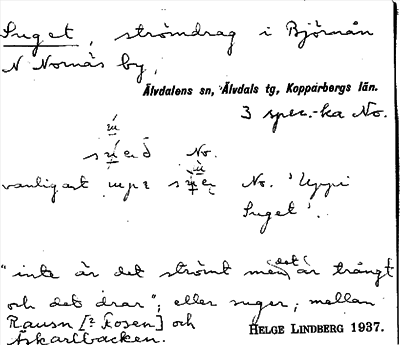 Suget, strömdrag i Björnån
N Nornäs by,
Älvdalens sn, Älvdals tg, Kopparbergs län.
3 spec.-ka No.
No.
vanligast No. "Uppi
Suget".
"inte är det strömt men det är trångt
och det drar"; eller suger; mellan
Rausn [? Fosen] och
Askarlbacken.
HELGE LINDBERG 1937.